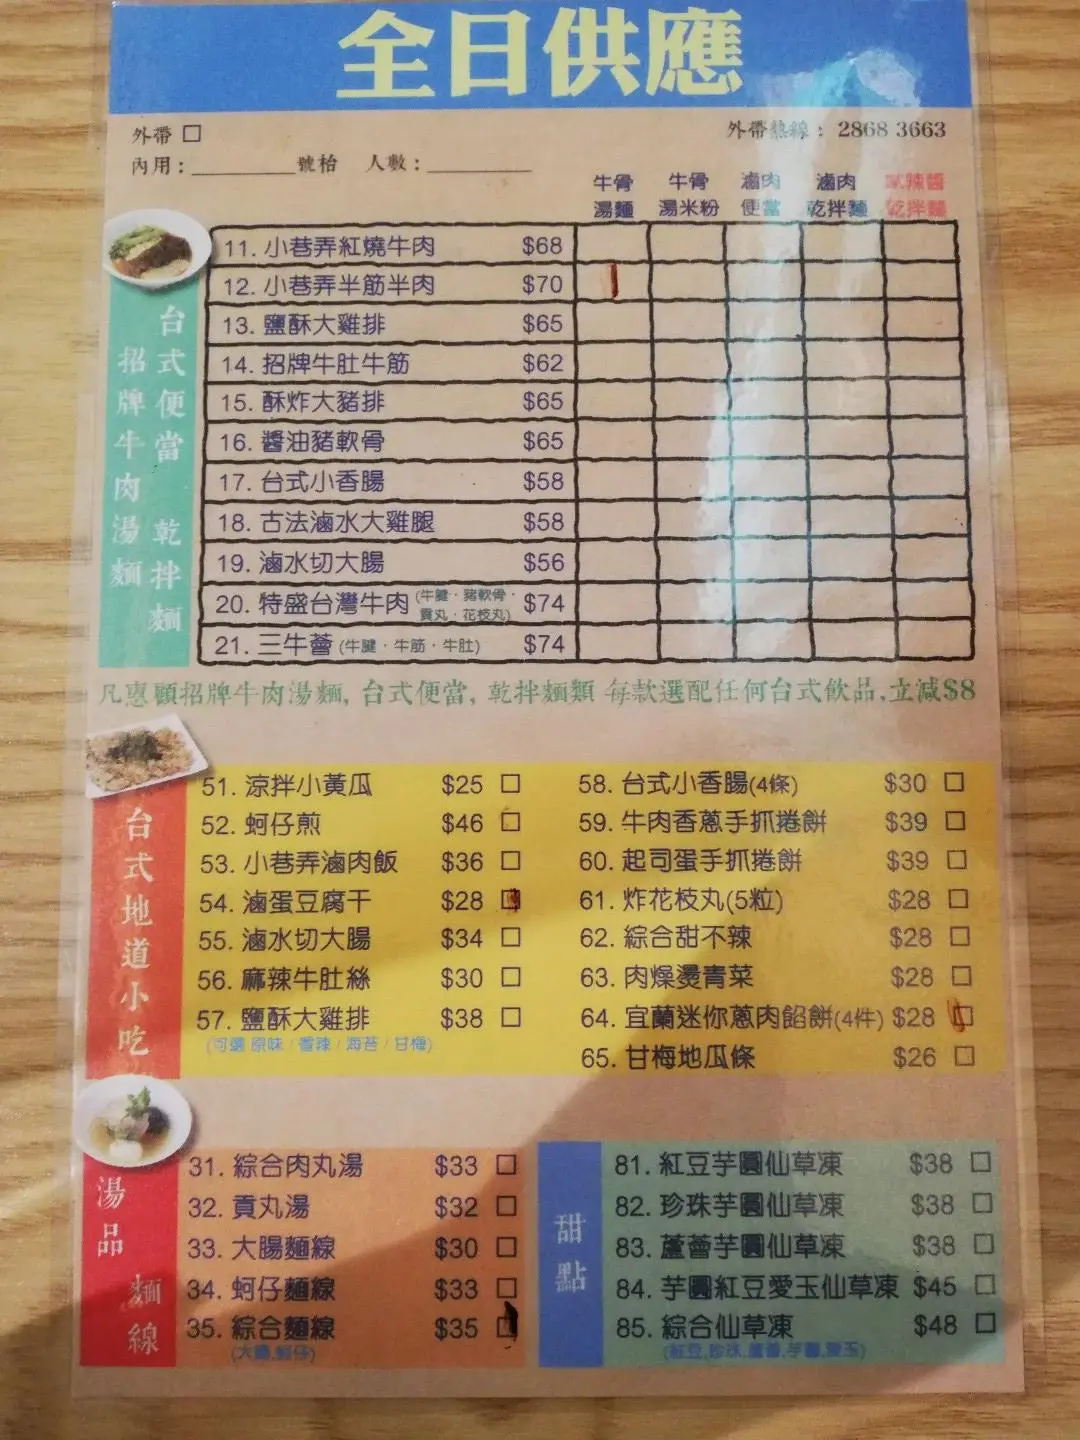 全日供應
外帶 □
外帶熱線：2868 3663
內用：________號枱 人數：________
牛骨湯麵
牛骨湯米粉
滷肉便當
滷肉乾拌麵
辣醬乾拌麵
台式便當 乾拌麵
招牌牛肉湯麵
11. 小巷弄紅燒牛肉 $68
12. 小巷弄半筋半肉 $70
13. 鹽酥大雞排 $65
14. 招牌牛肚牛筋 $62
15. 酥炸大豬排 $65
16. 醬油豬軟骨 $65
17. 台式小香腸 $58
18. 古法滷水大雞腿 $58
19. 滷水切大腸 $56
20. 特盛台灣牛肉 (牛腱．豬軟骨．貢丸．花枝丸) $74
21. 三牛薈 (牛腱．牛筋．牛肚) $74
凡惠顧招牌牛肉湯麵, 台式便當, 乾拌麵類 每款選配任何台式飲品,立減$8
台式地道小吃
51. 涼拌小黃瓜 $25 □
52. 蚵仔煎 $46 □
53. 小巷弄滷肉飯 $36 □
54. 滷蛋豆腐干 $28 □
55. 滷水切大腸 $34 □
56. 麻辣牛肚絲 $30 □
57. 鹽酥大雞排 $38 □
(可選 原味 / 香辣 / 海苔 / 甘梅)
58. 台式小香腸(4條) $30 □
59. 牛肉香蔥手抓捲餅 $39 □
60. 起司蛋手抓捲餅 $39 □
61. 炸花枝丸(5粒) $28 □
62. 綜合甜不辣 $28 □
63. 肉燥燙青菜 $28 □
64. 宜蘭迷你蔥肉餡餅(4件) $28 □
65. 甘梅地瓜條 $26 □
湯品 麵線
31. 綜合肉丸湯 $33 □
32. 貢丸湯 $32 □
33. 大腸麵線 $30 □
34. 蚵仔麵線 $33 □
35. 綜合麵線 $35 □
(大腸,蚵仔)
甜點
81. 紅豆芋圓仙草凍 $38 □
82. 珍珠芋圓仙草凍 $38 □
83. 蘆薈芋圓仙草凍 $38 □
84. 芋圓紅豆愛玉仙草凍 $45 □
85. 綜合仙草凍 $48 □
(紅豆,珍珠,蘆薈,芋圓,愛玉)